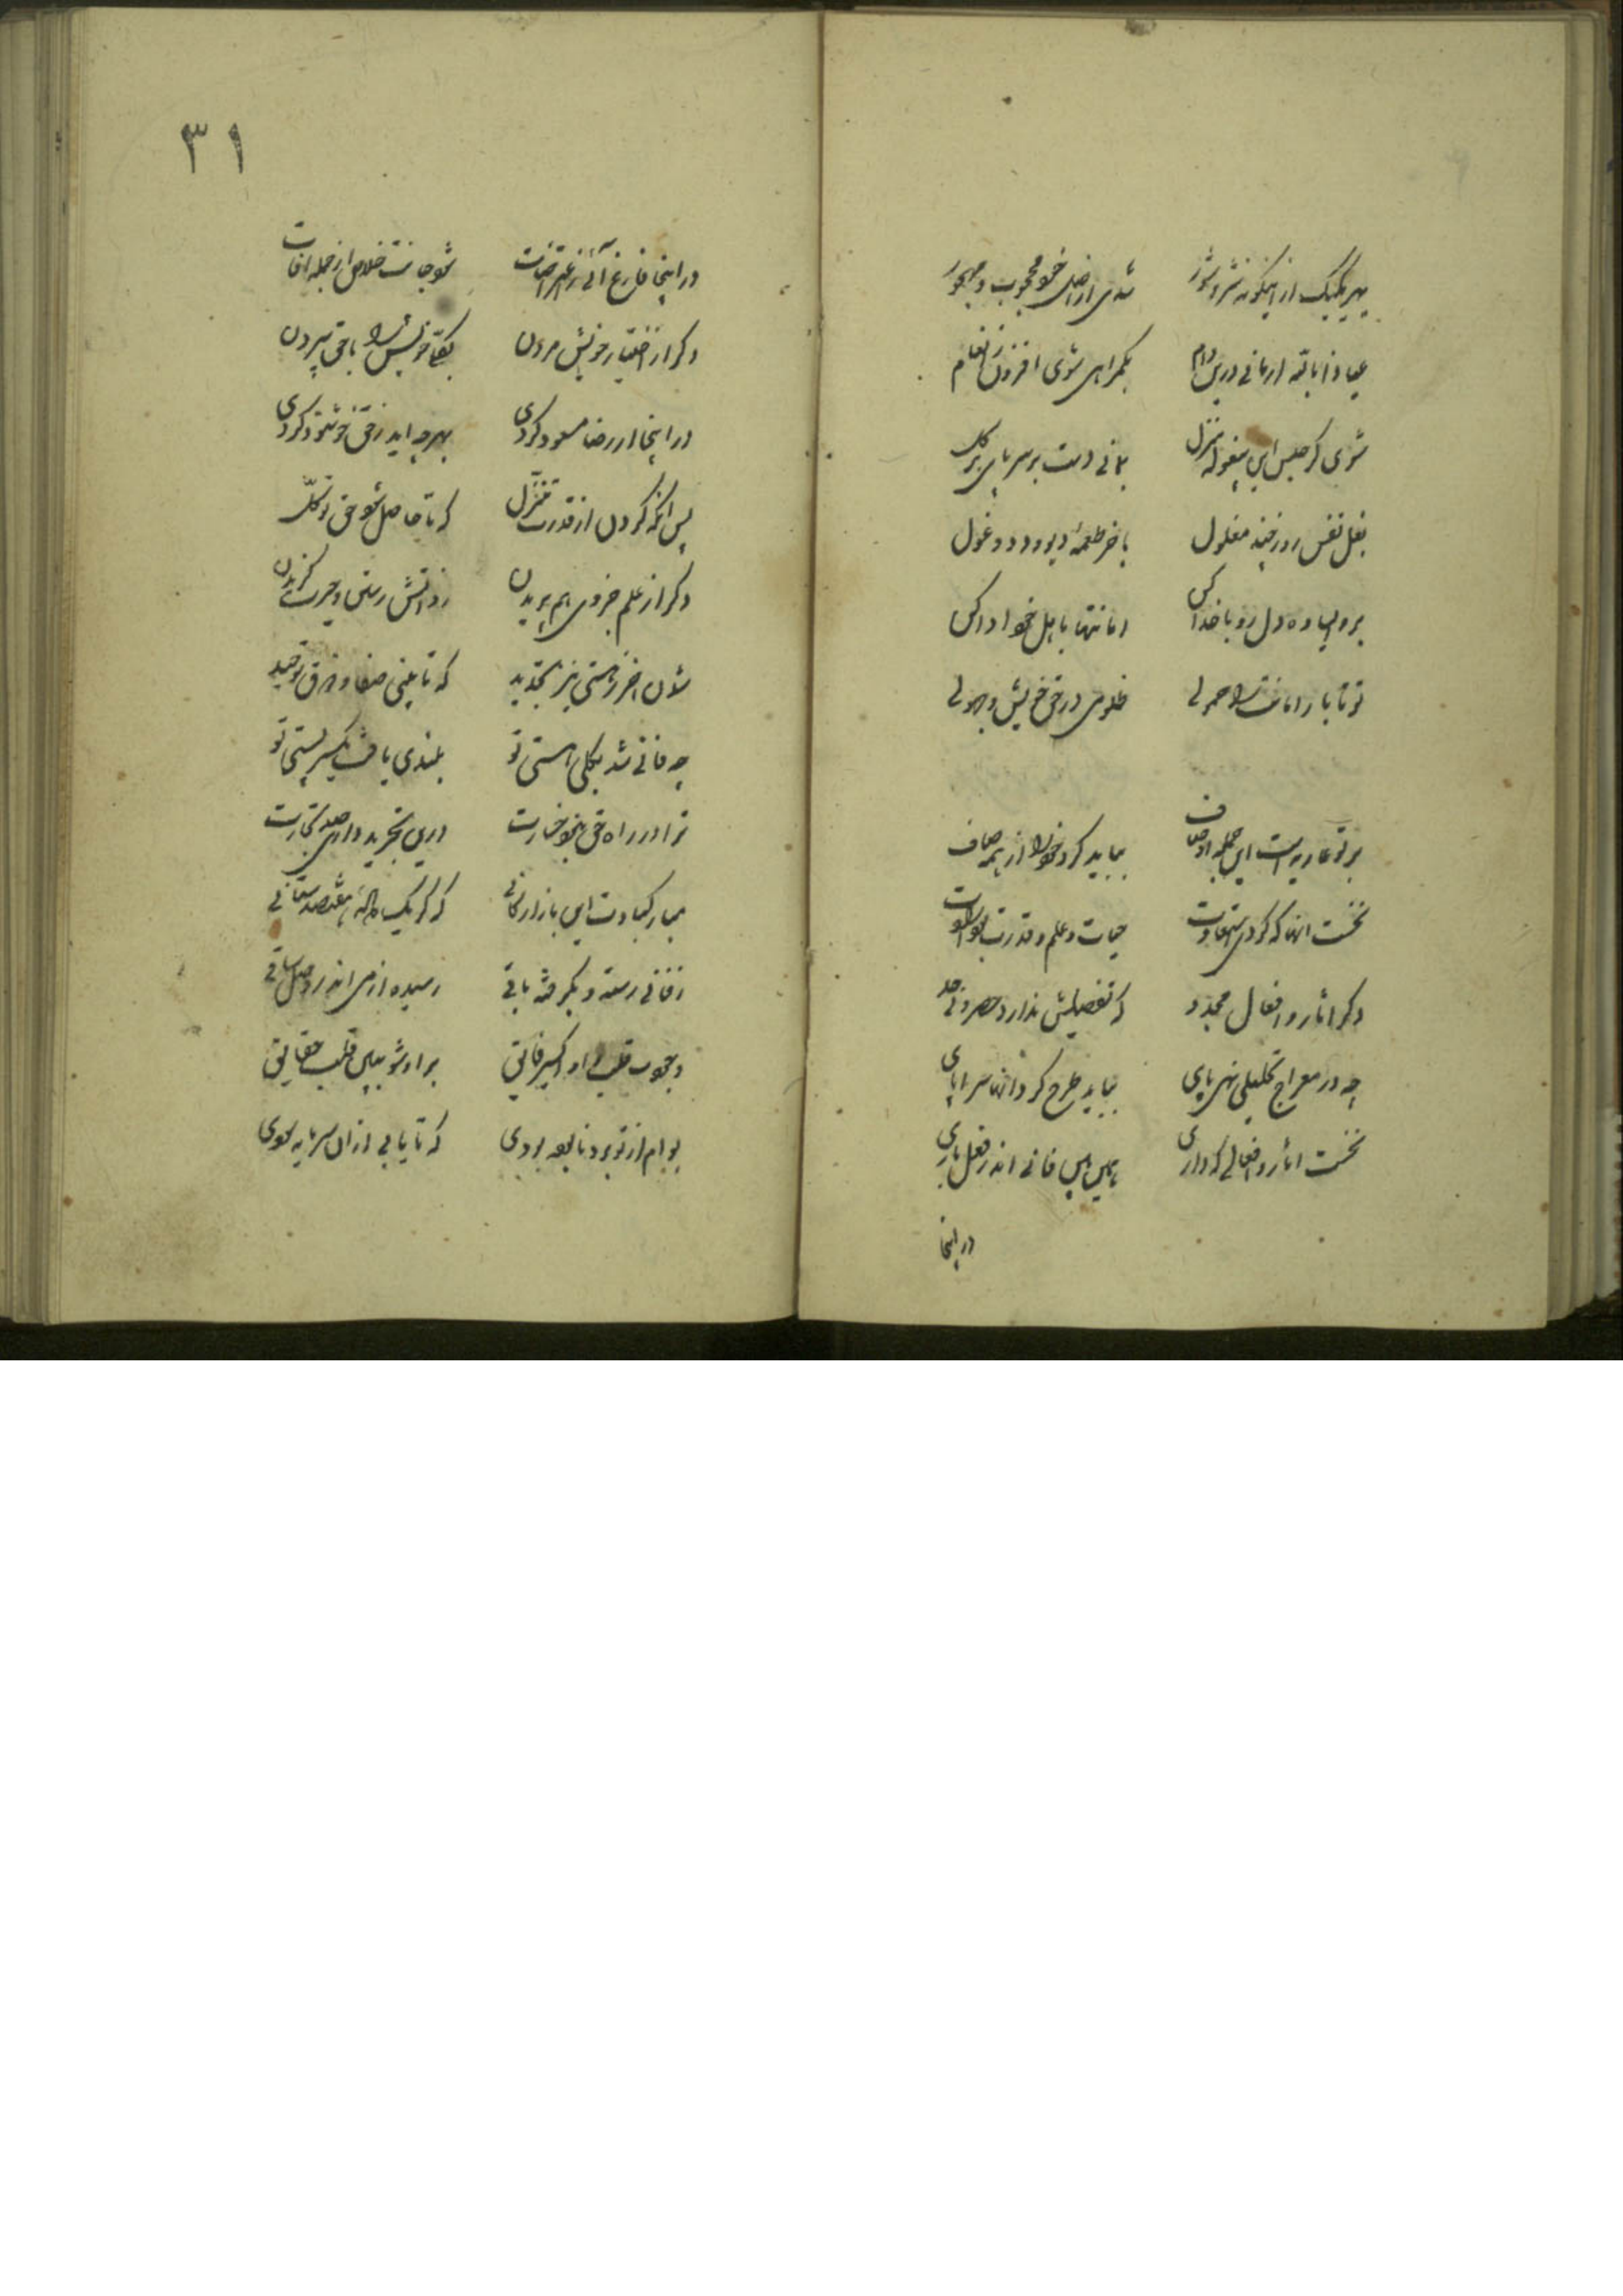 بهر یکیک ازینگونه شر و شور شدی از اصل خود محجوب و مهجور
عیاذا بالله ار مانی درین دام بگمراهی شوی افزون ز انعام
شوی گر حبس این بیغوله منزل بمانی دست بر سر پای بر گل
بغل نفس روز چند مغلول باخر طعمه دیو و دد و غول
برو ای ساده دل رو با خدا کن امانتها باهل خود ادا کن
تو تا بار امانت را حمولی ظلومی در حق خویش و جهولی
بر تو عاریه است این جمله اوصاف بباید کرد خود را از همه صاف
نخست آنها که کردی استعارت حیات و علم و قدرت
دگر آثار و افعال مجدد که تفصیلش ندارد حصر و نی حد
چه در معراج تحلیلی نهی پای بباید طرح کرد آنها سراپای
نخست آثار و افعالی که داری همی بین فانی اندر فعل باری
در اینجا
٣١
در اینجا فارغ آئی ز اعتراضات شود جانت خلاص از جمله افات
دگر از اختیار خویش مردن بکلی خویش را با حق سپردن
در اینجا از رضا مسعود گردی بهرچه اید ز حق خوشنود گردی
پس انگه کردن از قدرت تنزل که تا حاصل شود حق توکل
دگر از علم جزوی هم بریدن ز دانش رستن و حیرت گزیدن
شدن اخر ز هستی نیز تجرید که تا بینی صفا و ذوق توحید
چه فانی شد بکلی هستی تو بلندی یافت یکسر پستی تو
ترا در راه حق نبود خسارت درین تجرید داری صد تجارت
مبارکبادت این بازارگانی که گر یک کاله هفتصد ستانی
ز فانی رسته و بگرفته باقی رسیده از می اندر وصل ساقی
وجوب قلب او اکسیر فایق بر او شو ببین قلب حقایق
بوام از تو برد نابوده بودی که تا یابی از ان سرمایه سودی